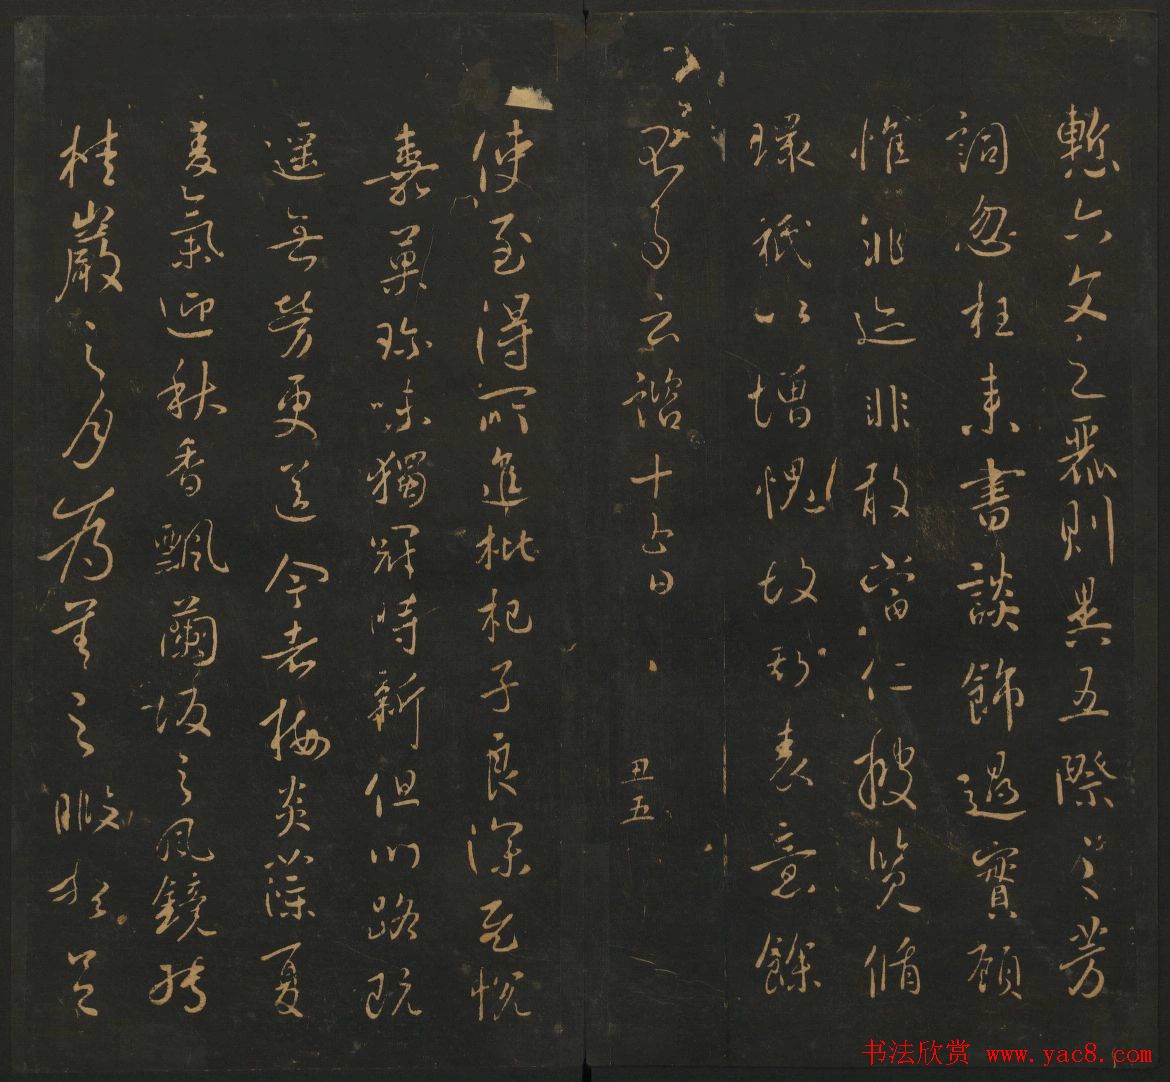 慙六文之麗則異五際之芳
詞忽枉来書談飾過實顧
惟迹非敢當仁披覽循
環祇以增愧故表意餘
云諮十日
丑五
使至得所進枇杷子良深慰悅
嘉菓珍味獨冠時新但川路既
遥無勞更送今者梅炎藻夏
麦氣迎秋香飄蘭坂之風鏡轉
桂巖之月為之暇想
书法欣赏 www.yac8.com